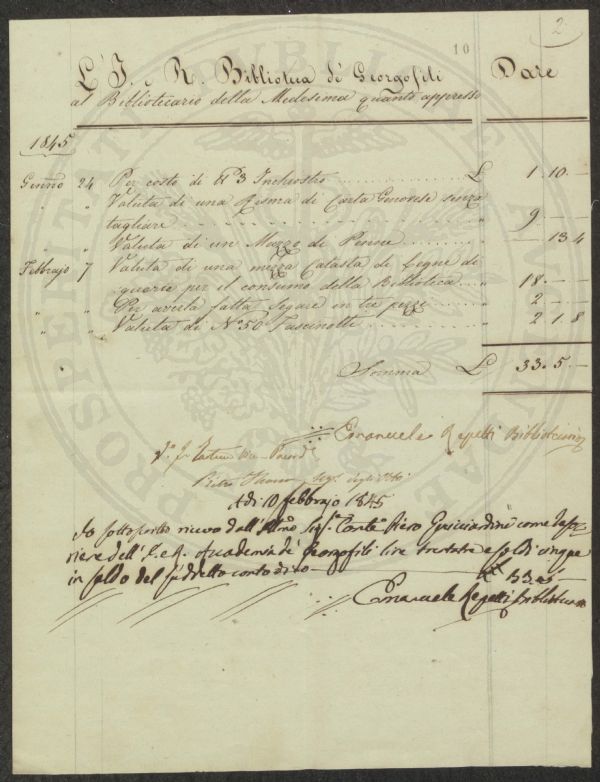 10
2
L' I. e R. Biblioteca de' Georgofili Dare
al Bibliotecario della Medesima quanto appresso
1845
Genn° 24 Per costo di 3 Inchiostro £ 1. 10. —
" " Valuta di una Risma di Carta Genovese senza
tagliare " 9 — —
" " Valuta di un Mazzo di Penne — 13 4
Febbrajo 7 Valuta di una mezza Catasta di Legne di
quercia per il consumo della Biblioteca " 18. — —
" " Per averla fatta segare in tre pezzi " 2 — —
" " Valuta di N° 50 Fascinotti " 2 1. 8
Somma £ 33. 5. —
Emanuele Repetti Bibliotecario
V°
Pietro
A dì 10 febbrajo 1845
Io sottoscritto ricevo dall' Sigre Conte Piero Guicciardini come Teso-
riere dell' I. e R. Accademia de' Georgofili lire trentatre e soldi cinque
in saldo del suddetto conto dico — £ 33. 5 —
Emanuele Repetti Bibliotecario
PROSPERITATI PUBLICAE AUGENDAE